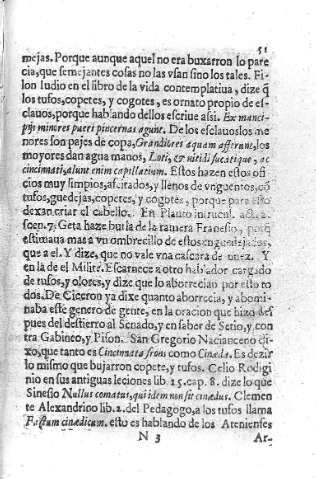 51
mejas. Porque aunque aquel no era buxarron lo pare
cia, que semejantes cosas no las vsan sino los tales. Fi-
lon Iudio en el libro de la vida contemplatiua, dize q̃
los tufos, copetes, y cogotes, es ornato propio de es-
clauos, porque hablando dellos escriue assi. Ex manci-
pijs minores pueri pincernas agunt. De los esclauos los me
nores son pajes de copa, Grandiores aquam afferunt, los
mayores dan agua manos, Loti, & nitidi fucatique, ac
cincinnati, alunt enim capillatium. Estos hazen estos ofi
cios muy limpios, afeitados, y llenos de vnguentos, cõ
tufos, guedejas, copetes, y cogotes, porque para esto
dexan criar el cabello. En Plauto in trucul. act. 2.
scen. 7. Geta haze burla de la ramera Franesio, porq̃
estimaua mas a vn ombrecillo de estos enguedejados,
que a el. Y dize, que no vale vna cascara de nuez. Y
en la de el Milite. Escarnece a otro hablador cargado
de tufos, y olores, y dize que lo aborrecian por esto to
dos. De Ciceron ya dixe quanto aborrecia, y abomi-
naba este genero de gente, en la oracion que hizo des
pues del destierro al Senado, y en saber de Setio, y con
tra Gabineo, y Pison. San Gregorio Nacianceno di-
xo, que tanto es Cincinnata frons como Cinæda. Es dezir
lo mismo que bujarron copete, y tufos. Celio Rodigi
nio en sus antiguas leciones lib. 15. cap. 8. dize lo que
Sinesio Nullus comatus, qui idem non sit cinædus. Clemen
te Alexandrino lib. 2. del Pedagogo, a los tufos llama
Factum cinædicum. esto es hablando de los Atenienses
N 3 Ar-